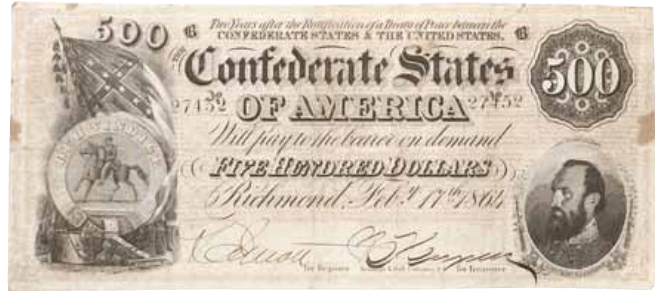 500
Two Years after the Ratification of a Treaty of Peace between the
CONFEDERATE STATES & THE UNITED STATES.
THE
Confederate States
500
No 27452 OF AMERICA No 27452
Will pay to the bearer on demand
FIVE HUNDRED DOLLARS
Richmond, Feby. 17th 1864
for Register
for Treasurer